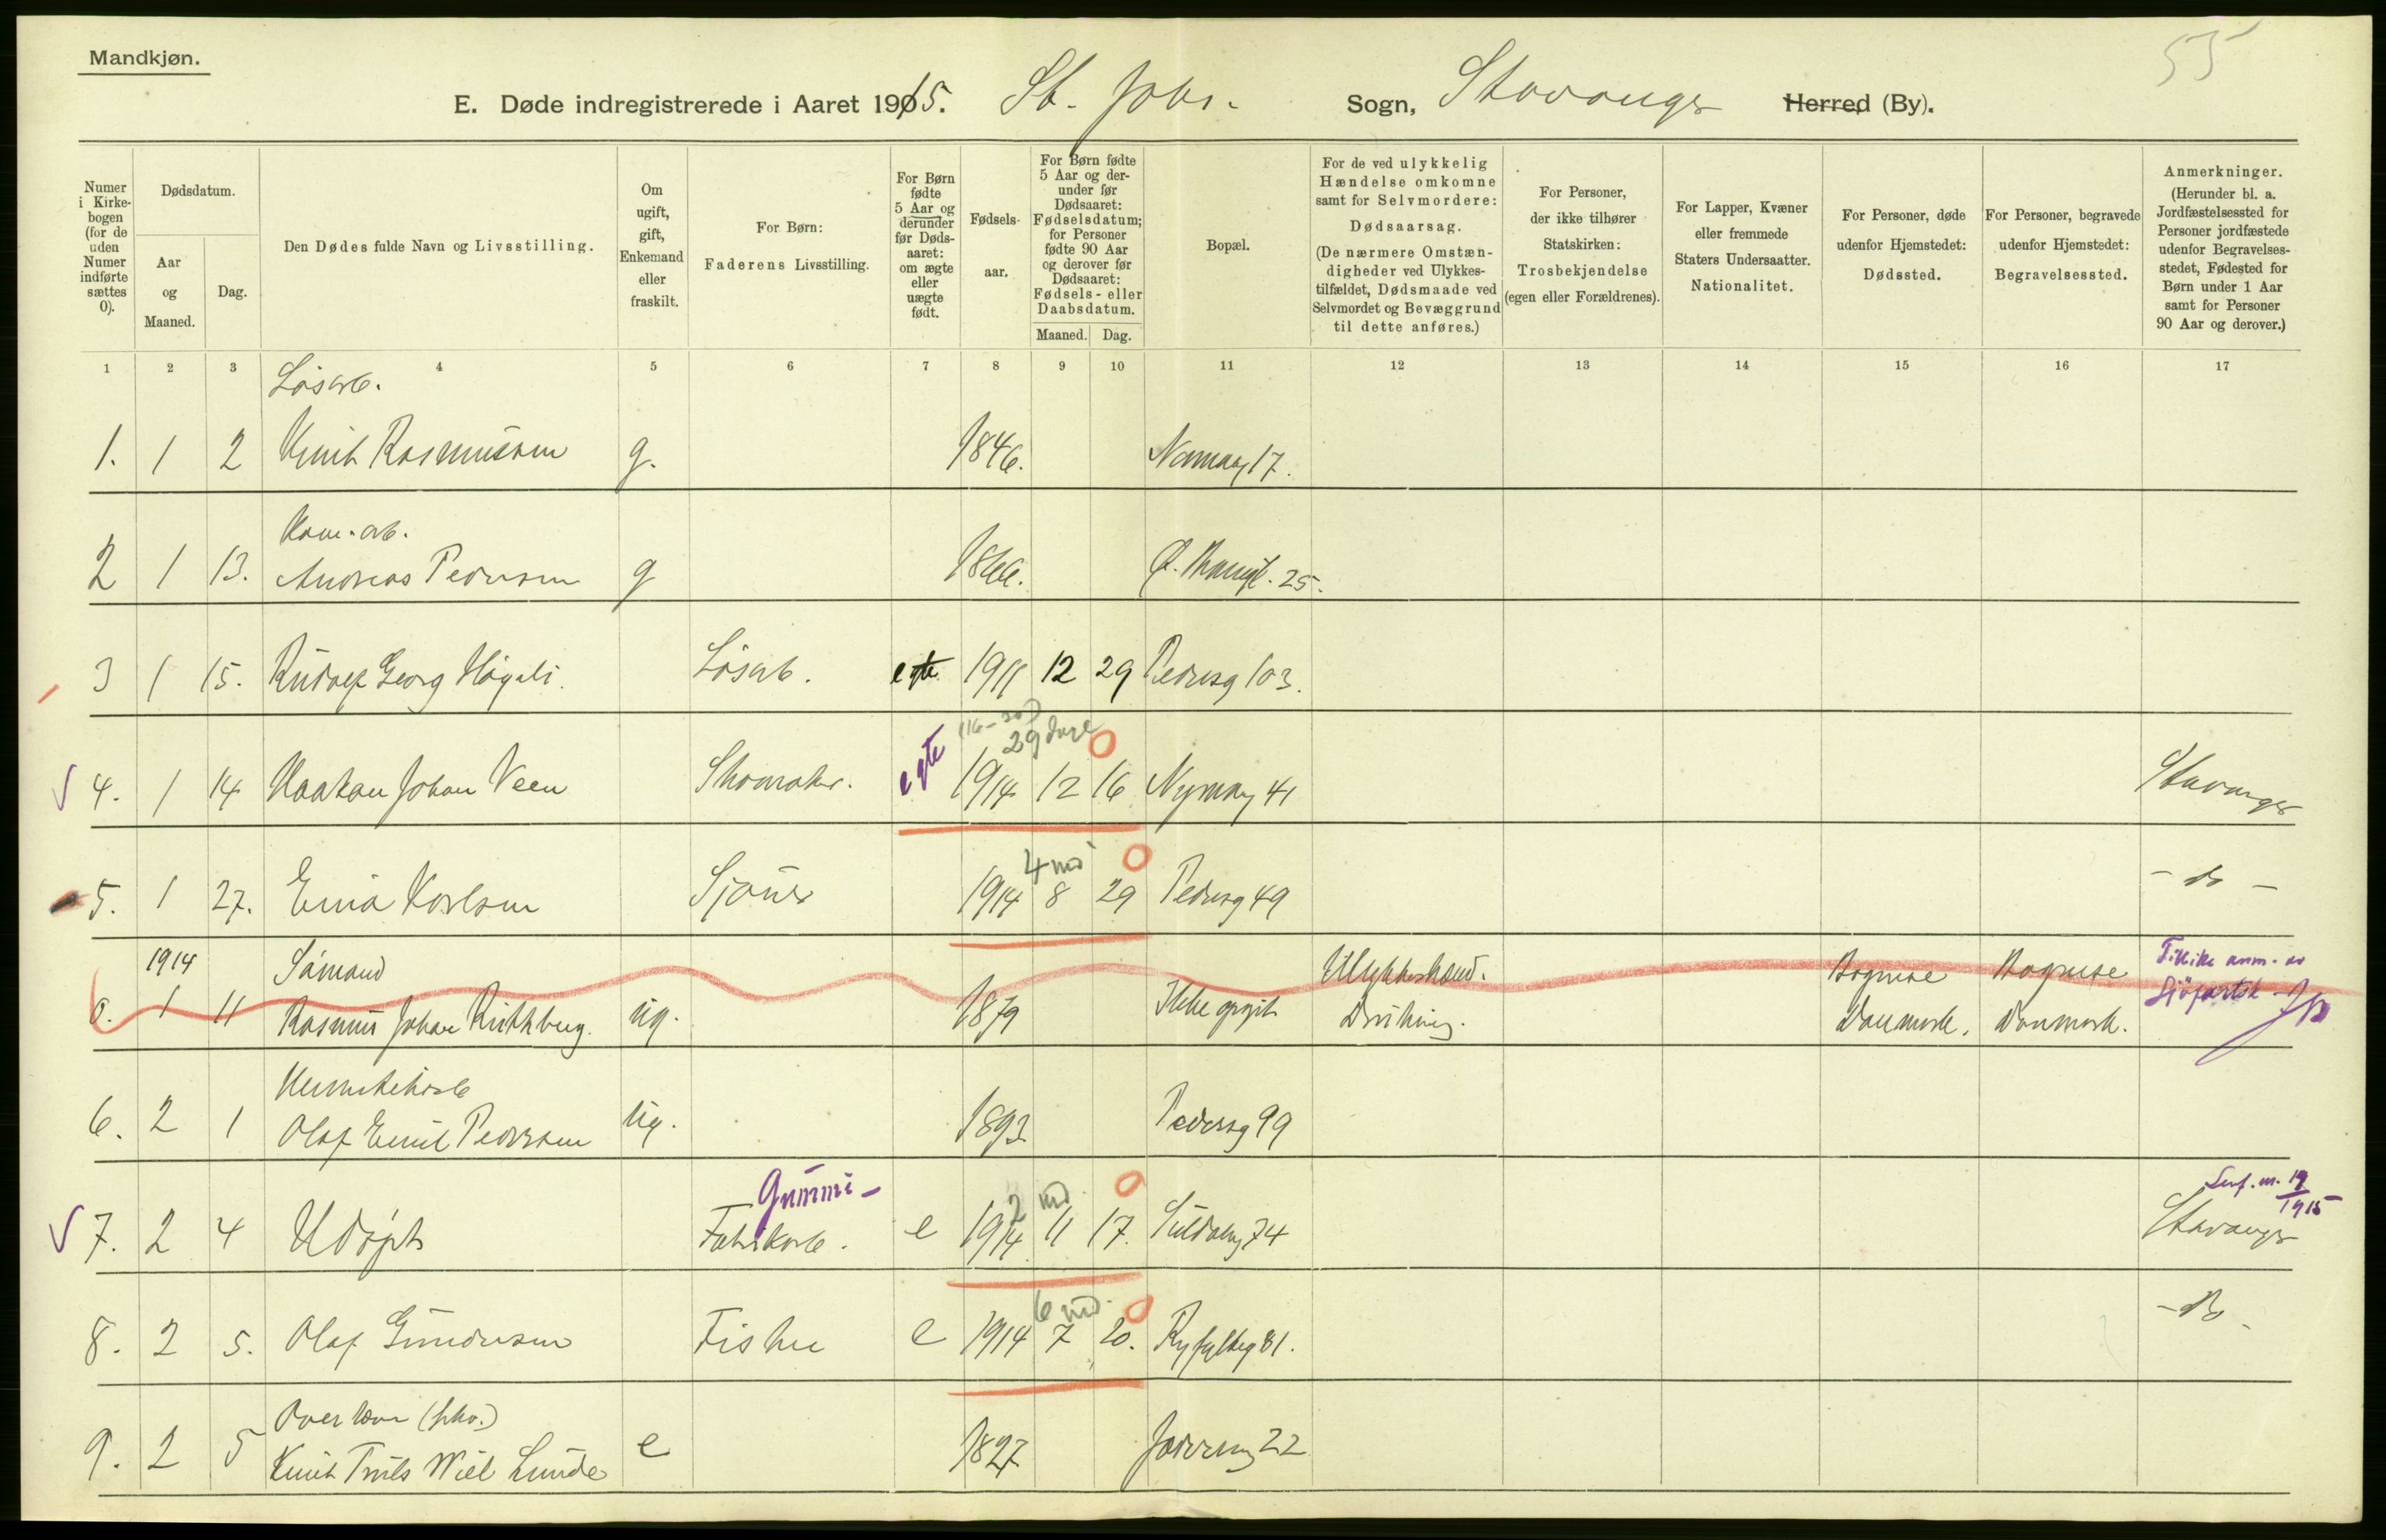 Mandkjøn.
55
E. Døde indregistrerede i Aaret 1915. St. Joh. Sogn, Stavanger Herred (By).
Numer i Kirkebogen (for de uden Numer indførte sættes 0).
Dødsdatum.
Aar og Maaned.
Dag.
Den Dødes fulde Navn og Livsstilling.
Om ugift, gift, Enkemand eller fraskilt.
For Børn: Faderens Livsstilling.
For Børn fødte 5 Aar og derunder før Dødsaaret: om ægte eller uægte født.
Fødselsaar.
For Børn fødte 5 Aar og derunder før Dødsaaret: Fødselsdatum; for Personer fødte 90 Aar og derover før Dødsaaret: Fødsels- eller Daabsdatum.
Maaned. Dag.
Bopæl.
For de ved ulykkelig Hændelse omkomne samt for Selvmordere: Dødsaarsag. (De nærmere Omstændigheder ved Ulykkestilfældet, Dødsmaade ved Selvmordet og Bevæggrund til dette anføres.)
For Personer, der ikke tilhører Statskirken: Trosbekjendelse (egen eller Forældrenes).
For Lapper, Kvæner eller fremmede Staters Undersaatter. Nationalitet.
For Personer, døde udenfor Hjemstedet: Dødssted.
For Personer, begravede udenfor Hjemstedet: Begravelsessted.
Anmerkninger. (Herunder bl. a. Jordfæstelsessted for Personer jordfæstede udenfor Begravelsesstedet, Fødested for Børn under 1 Aar samt for Personer 90 Aar og derover.)
1 2 3 4 5 6 7 8 9 10 11 12 13 14 15 16 17
Løsarb.
1. 1 2 Knut Rasmussen g. 1846. 17.
Kom. arb.
2 1 13. Andreas Pedersen g 1866. 25.
3 1 15. Rudolf Georg Høgeli. Løsarb. egte 1911 12 29 Pedersg 103.
(16-20) 29 dage 0
4. 1 14 Haakan Johan Veen Skomaker. egte 1914 12 16 Nymansg 41 Stavanger
4 md 0
5. 1 27. Karlsen Sjauer 1914 8 29 Pedersg 49 - do -
1914 Sømand Ulykkeshænd. Bogense Bogense
0. 1 11 Rasmus Johan ug. 1879 Ikke opgit Drukning. Danmark. Danmark. Sjøfartsk
Hermetikarb
6. 2 1 Olaf Emil Pedersen ug. 1893 Pedersg 99
Gummi- 2 md 0 19/1915
7. 2 4 Udøpt Fabrikarb. e 1914 11 17. Suldalsg 74 Stavanger
6 md. 0
8. 2 5. Olaf Gundersen Fisker e 1914 7 20. Ryfylkeg 81. - Do -
Overlærer
9. 2 5 Knut Truls Wiel Lunde e 1827 22